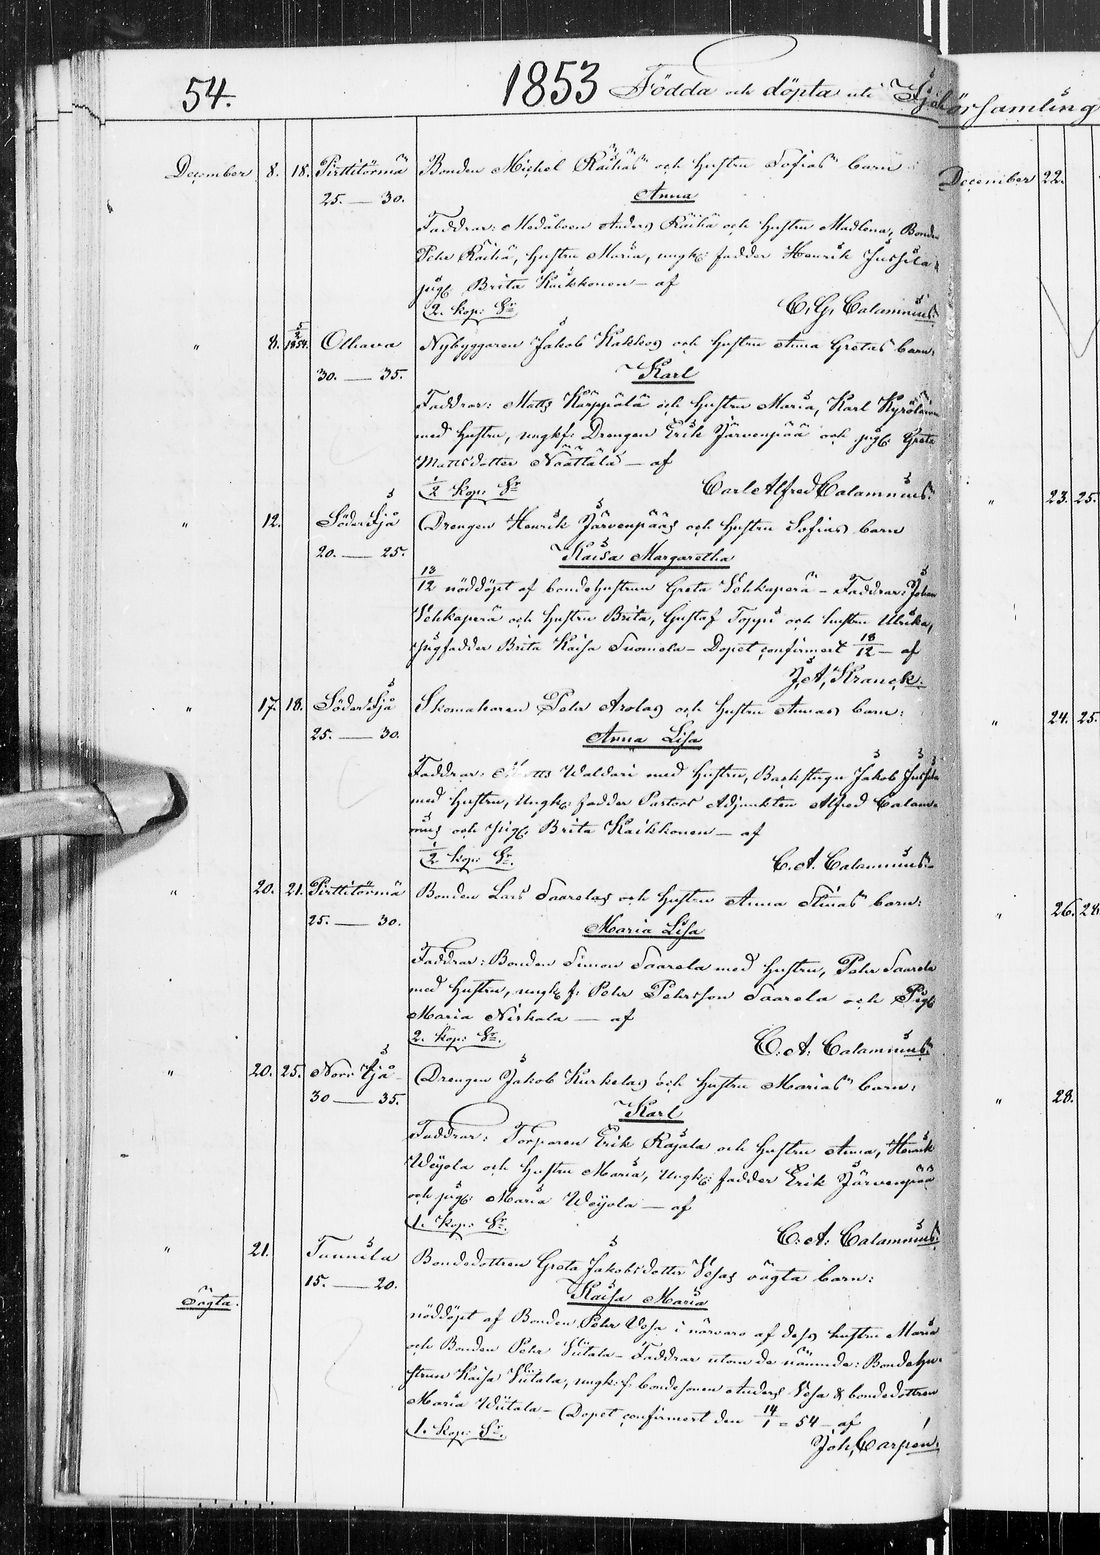 54. 1853 Födda och döpta uti Ijo församling
December 8. 18. Pirttitörmä Bonden Michel Räihäs och hustru Sofias barn:
25. — 30. Anna
Faddrar: Medåboen Anders Räihä och hustru Madlena, Bonden
Pehr Räihä, hustru Maria, ungk: fadder Henrik Jussila &
pig. Brita Kaikkonen — af
2. kop: Sr C. G. Calamnius.
" 8. 5/2 1854. Olhava Nybyggaren Jakob Kakkos och hustru Anna Gretas barn:
30. — 35. Karl
Faddrar: Matts Karppala och hustru Maria, Karl
med hustru, ungk f: Drengen Erik Järvenpää och pig. Greta
Mattsdotter Näättälä — af
1/2 kop: Sr Carl Alfred Calamnius.
" 12. Söder Ijå Drengen Henrik Järvenpääs och hustru Sofias barn
20. — 25. Kaisa Margaretha
13/12 nöddöpt af bondehustrun Greta Vehkaperä – Faddrar: Johan
Vehkaperä och hustru Brita, Gustaf Toppi och hustru Ulrika,
pigfadder Brita Kaisa Suomela – Dopet confirmert 18/12 – af
J. A. Kranck.
" 17. 18. Söder Ijå Skomakaren Pehr Arolas och hustru Annas barn:
25. — 30. Anna Lisa
Faddrar: Matts Waldari med hustru, Backstugu Jakob Jussila
med hustru, Ungk: fadder Pastors Adjunkten Alfred Calam-
nius och pig. Brita Kaikkonen — af
1/2 kop: Sr. C. A. Calamnius.
" 20. 21. Pirttitörmä Bonden Lars Saarelas och hustru Anna Stinas barn:
25. — 30. Maria Lisa
Faddrar: Bonden Simon Saarela med hustru, Pehr Saarela
med hustru, ungk f: Pehr Pehrsson Saarela och Pig.
Maria Niskala — af
2. kop: Sr. C. A. Calamnius.
" 20. 25. Norr Ijå Drengen Jakob Kurkelas och hustru Marias barn:
30 — 35. Karl
Faddrar: Torparen Erik Rajala och hustru Anna, Henrik
Weijola och hustru Maria, Ungk: fadder Erik Järvenpää
och pig. Maria Weijola — af
1. kop: Sr. C. A. Calamnius.
" 21. Tannila Bondedottren Greta Jakobsdotter Vesas oägta barn:
15. — 20. Kaisa Maria
Oägta. nöddöpt af Bonden Pehr Vesa i närvaro af dess hustru Maria
och Bonden Pehr Viitala – Faddrar utom de nämnde: Bondehu-
strun Kaisa Viitala, ungk: f. bondesonen Anders Vesa & bondedottren
Maria Wiitala – Dopet confirmert den 14/1 = 54 – af
1. kop: Sr. Joh. Carpén.
December 22.
" 23. 25.
" 24. 25.
" 26. 28
" 28.